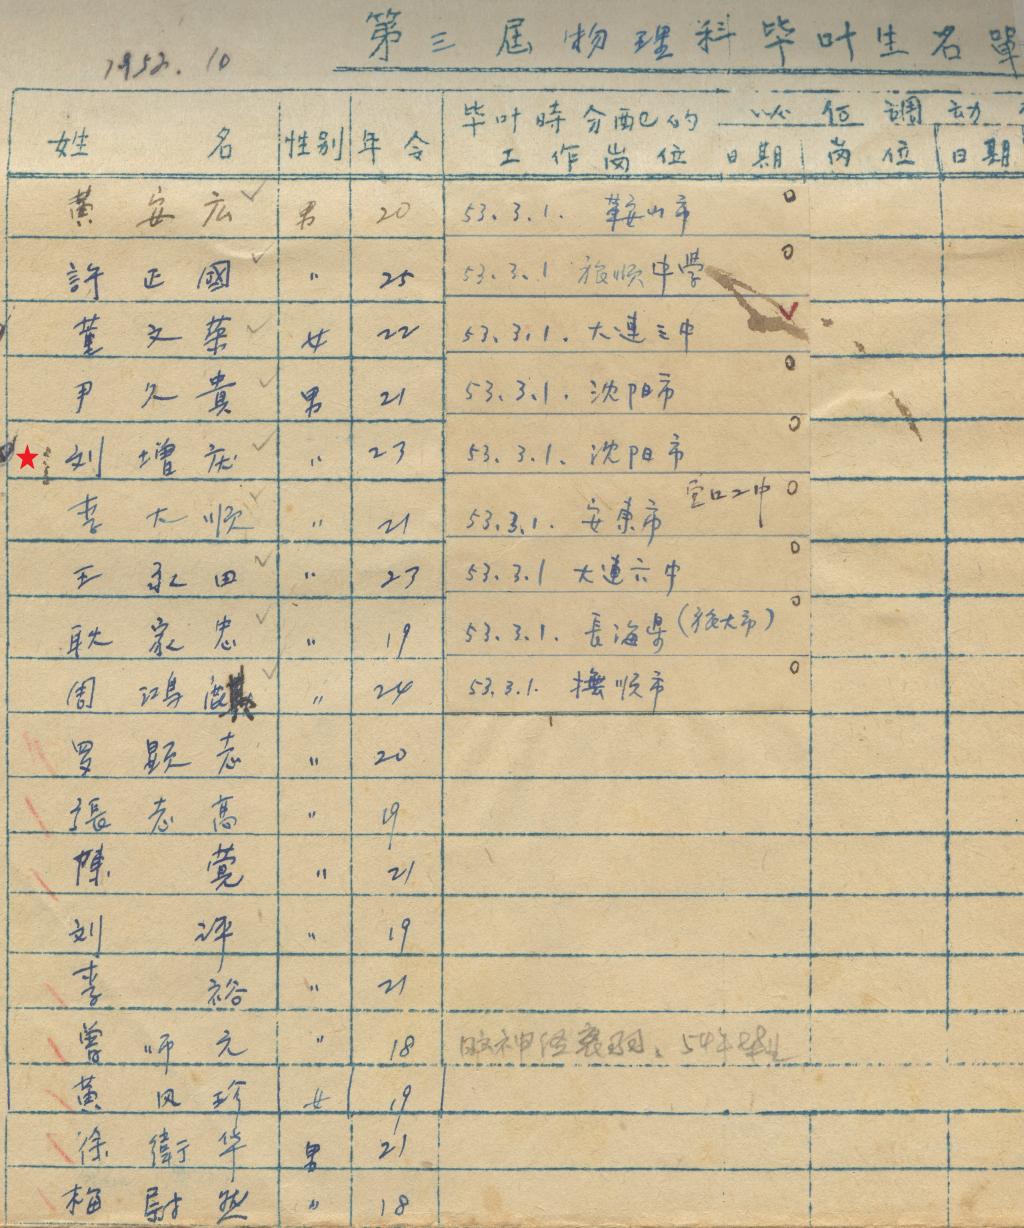 第三届物理科毕叶生名單
1952.10
姓名 性别 年令 毕叶時分配的工作岗位 以后調动
日期 岗位 日期
黄安宏 男 20 53.3.1. 鞍山市
許正國 〃 25 53.3.1 旅顺中學
董文荣 女 22 53.3.1. 大連三中
尹久貴 男 21 53.3.1. 沈阳市
刘增庆 〃 23 53.3.1. 沈阳市
李大順 〃 21 53.3.1. 安東市
王永田 〃 23 53.3.1 大連六中
耿家忠 〃 19 53.3.1. 長海県(旅大市)
周鴻 〃 24 53.3.1. 撫順市
罗顕志 〃 20
張志高 〃 19
陳 〃 21
刘評 〃 19
李裕 〃 21
曾师元 〃 18 脑神经衰弱、54年毕业
黄凤珍 女 19
徐衛华 男 21
梅尉然 〃 18